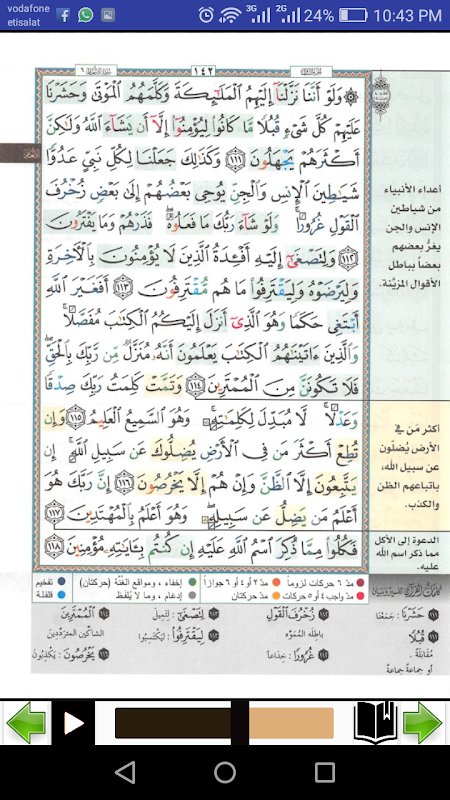 vodafone
etisalat
3G
2G
24%
10:43 PM
١٤٢
وَلَوْ أَنَّنَا نَزَّلْنَا إِلَيْهِمُ الْمَلَٰٓئِكَةَ وَكَلَّمَهُمُ الْمَوْتَىٰ وَحَشَرْنَا
عَلَيْهِمْ كُلَّ شَىْءٍ قُبُلًا مَّا كَانُوا۟ لِيُؤْمِنُوٓا۟ إِلَّآ أَن يَشَآءَ اللَّهُ وَلَٰكِنَّ
أَكْثَرَهُمْ يَجْهَلُونَ ﴿١١١﴾ وَكَذَٰلِكَ جَعَلْنَا لِكُلِّ نَبِىٍّ عَدُوًّا
شَيَٰطِينَ الْإِنسِ وَالْجِنِّ يُوحِى بَعْضُهُمْ إِلَىٰ بَعْضٍ زُخْرُفَ
الْقَوْلِ غُرُورًا ۚ وَلَوْ شَآءَ رَبُّكَ مَا فَعَلُوهُ ۖ فَذَرْهُمْ وَمَا يَفْتَرُونَ
﴿١١٢﴾ وَلِتَصْغَىٰٓ إِلَيْهِ أَفْـِٔدَةُ الَّذِينَ لَا يُؤْمِنُونَ بِالْـَٔاخِرَةِ
وَلِيَرْضَوْهُ وَلِيَقْتَرِفُوا۟ مَا هُم مُّقْتَرِفُونَ ﴿١١٣﴾ أَفَغَيْرَ اللَّهِ
أَبْتَغِى حَكَمًا وَهُوَ الَّذِىٓ أَنزَلَ إِلَيْكُمُ الْكِتَٰبَ مُفَصَّلًا ۚ
وَالَّذِينَ ءَاتَيْنَٰهُمُ الْكِتَٰبَ يَعْلَمُونَ أَنَّهُۥ مُنَزَّلٌ مِّن رَّبِّكَ بِالْحَقِّ ۖ
فَلَا تَكُونَنَّ مِنَ الْمُمْتَرِينَ ﴿١١٤﴾ وَتَمَّتْ كَلِمَتُ رَبِّكَ صِدْقًا
وَعَدْلًا ۚ لَّا مُبَدِّلَ لِكَلِمَٰتِهِۦ ۚ وَهُوَ السَّمِيعُ الْعَلِيمُ ﴿١١٥﴾ وَإِن
تُطِعْ أَكْثَرَ مَن فِى الْأَرْضِ يُضِلُّوكَ عَن سَبِيلِ اللَّهِ ۚ إِن
يَتَّبِعُونَ إِلَّا الظَّنَّ وَإِنْ هُمْ إِلَّا يَخْرُصُونَ ﴿١١٦﴾ إِنَّ رَبَّكَ هُوَ
أَعْلَمُ مَن يَضِلُّ عَن سَبِيلِهِۦ ۖ وَهُوَ أَعْلَمُ بِالْمُهْتَدِينَ ﴿١١٧﴾
فَكُلُوا۟ مِمَّا ذُكِرَ اسْمُ اللَّهِ عَلَيْهِ إِن كُنتُم بِـَٔايَٰتِهِۦ مُؤْمِنِينَ ﴿١١٨﴾
أعداء الأنبياء
من شياطين
الإنس والجن
يغرُّ بعضهم
بعضاً بباطل
الأقوال المزيَّنة.
أكثر مَن في
الأرض يُضلّون
عن سبيل الله،
باتباعهم الظن
والكذب.
الدعوة إلى الأكل
مما ذكر اسم الله
عليه.
مدّ ٦ حركات لزوماً
مدّ ٢ أو ٤ أو ٦ جوازاً
إخفاء، ومواقع الغُنَّة (حركتان)
تفخيم
مدّ واجب ٤ أو ٥ حركات
مدّ حركتان
إدغام، وما لا يُلفَظ
قلقلة
حَشَرْنَا: جَمَعْنَا
قُبُلًا
مُقَابَلَةً .
أو جماعةً جماعةً
زُخْرُفَ الْقَوْلِ
باطلَه المُمَوَّه
غُرُورًا: خِدَاعاً
لِتَصْغَىٰ: لِتَمِيلَ
لِيَقْتَرِفُوا: لِيَكْتَسِبُوا
الْمُمْتَرِينَ
الشاكّين المتردّدين
يَخْرُصُونَ: يَكْذِبُونَ